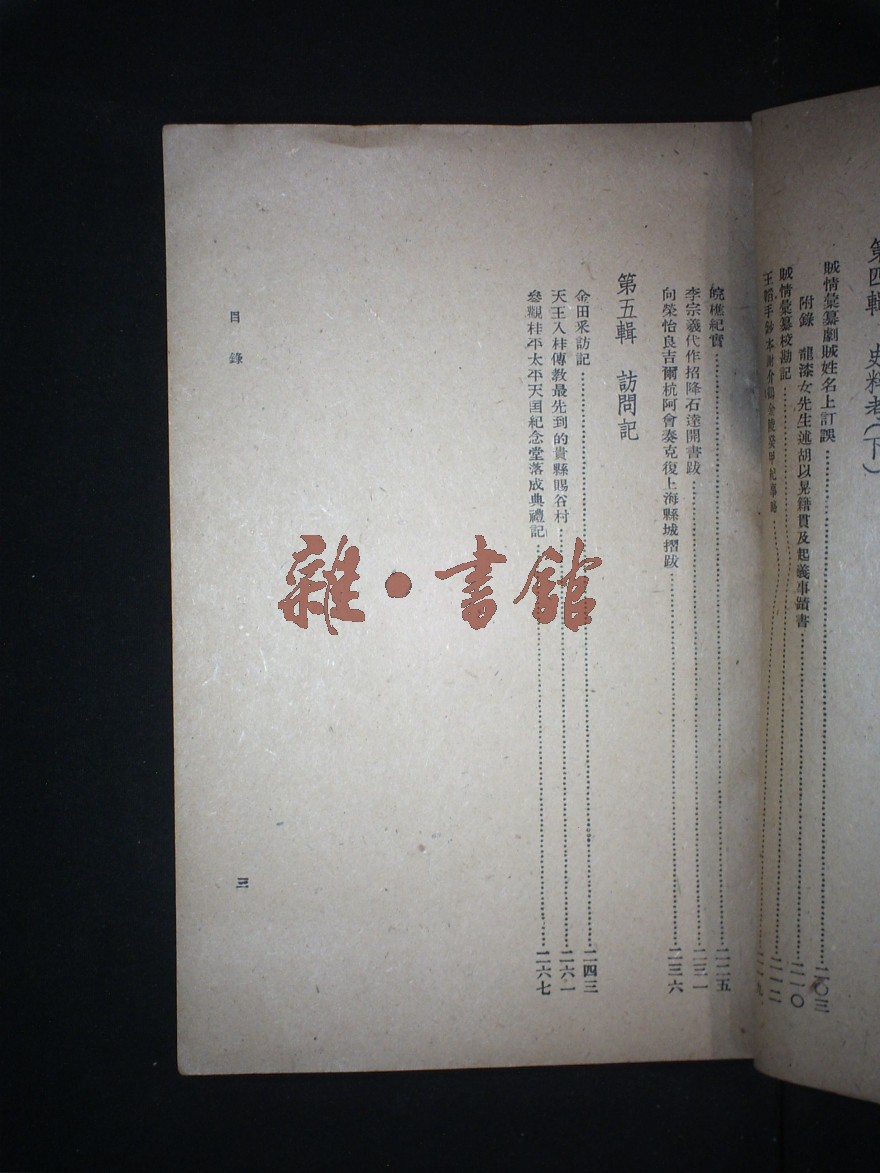 第四輯 史料考(下)
賊情彙纂劇賊姓名上訂誤……二〇三
附錄 龍漆女先生述胡以晃籍貫及起義事蹟書……二一〇
賊情彙纂校勘記……二一二
王韜手鈔本謝介鶴金陵癸甲紀事略……二一九
皖樵紀實……二二五
李宗羲代作招降石達開書跋……二三一
向榮怡良吉爾杭阿會奏克復上海縣城摺跋……二三六
第五輯 訪問記
金田采訪記……二四三
天王入桂傳教最先到的貴縣賜谷村……二六一
參觀桂平太平天囯紀念堂落成典禮記……二六七
目錄
三
雜·書館